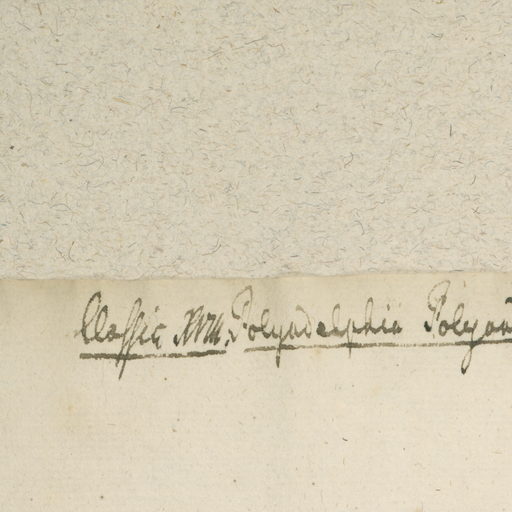 Classis XVIII. Polyadelphia Polyan